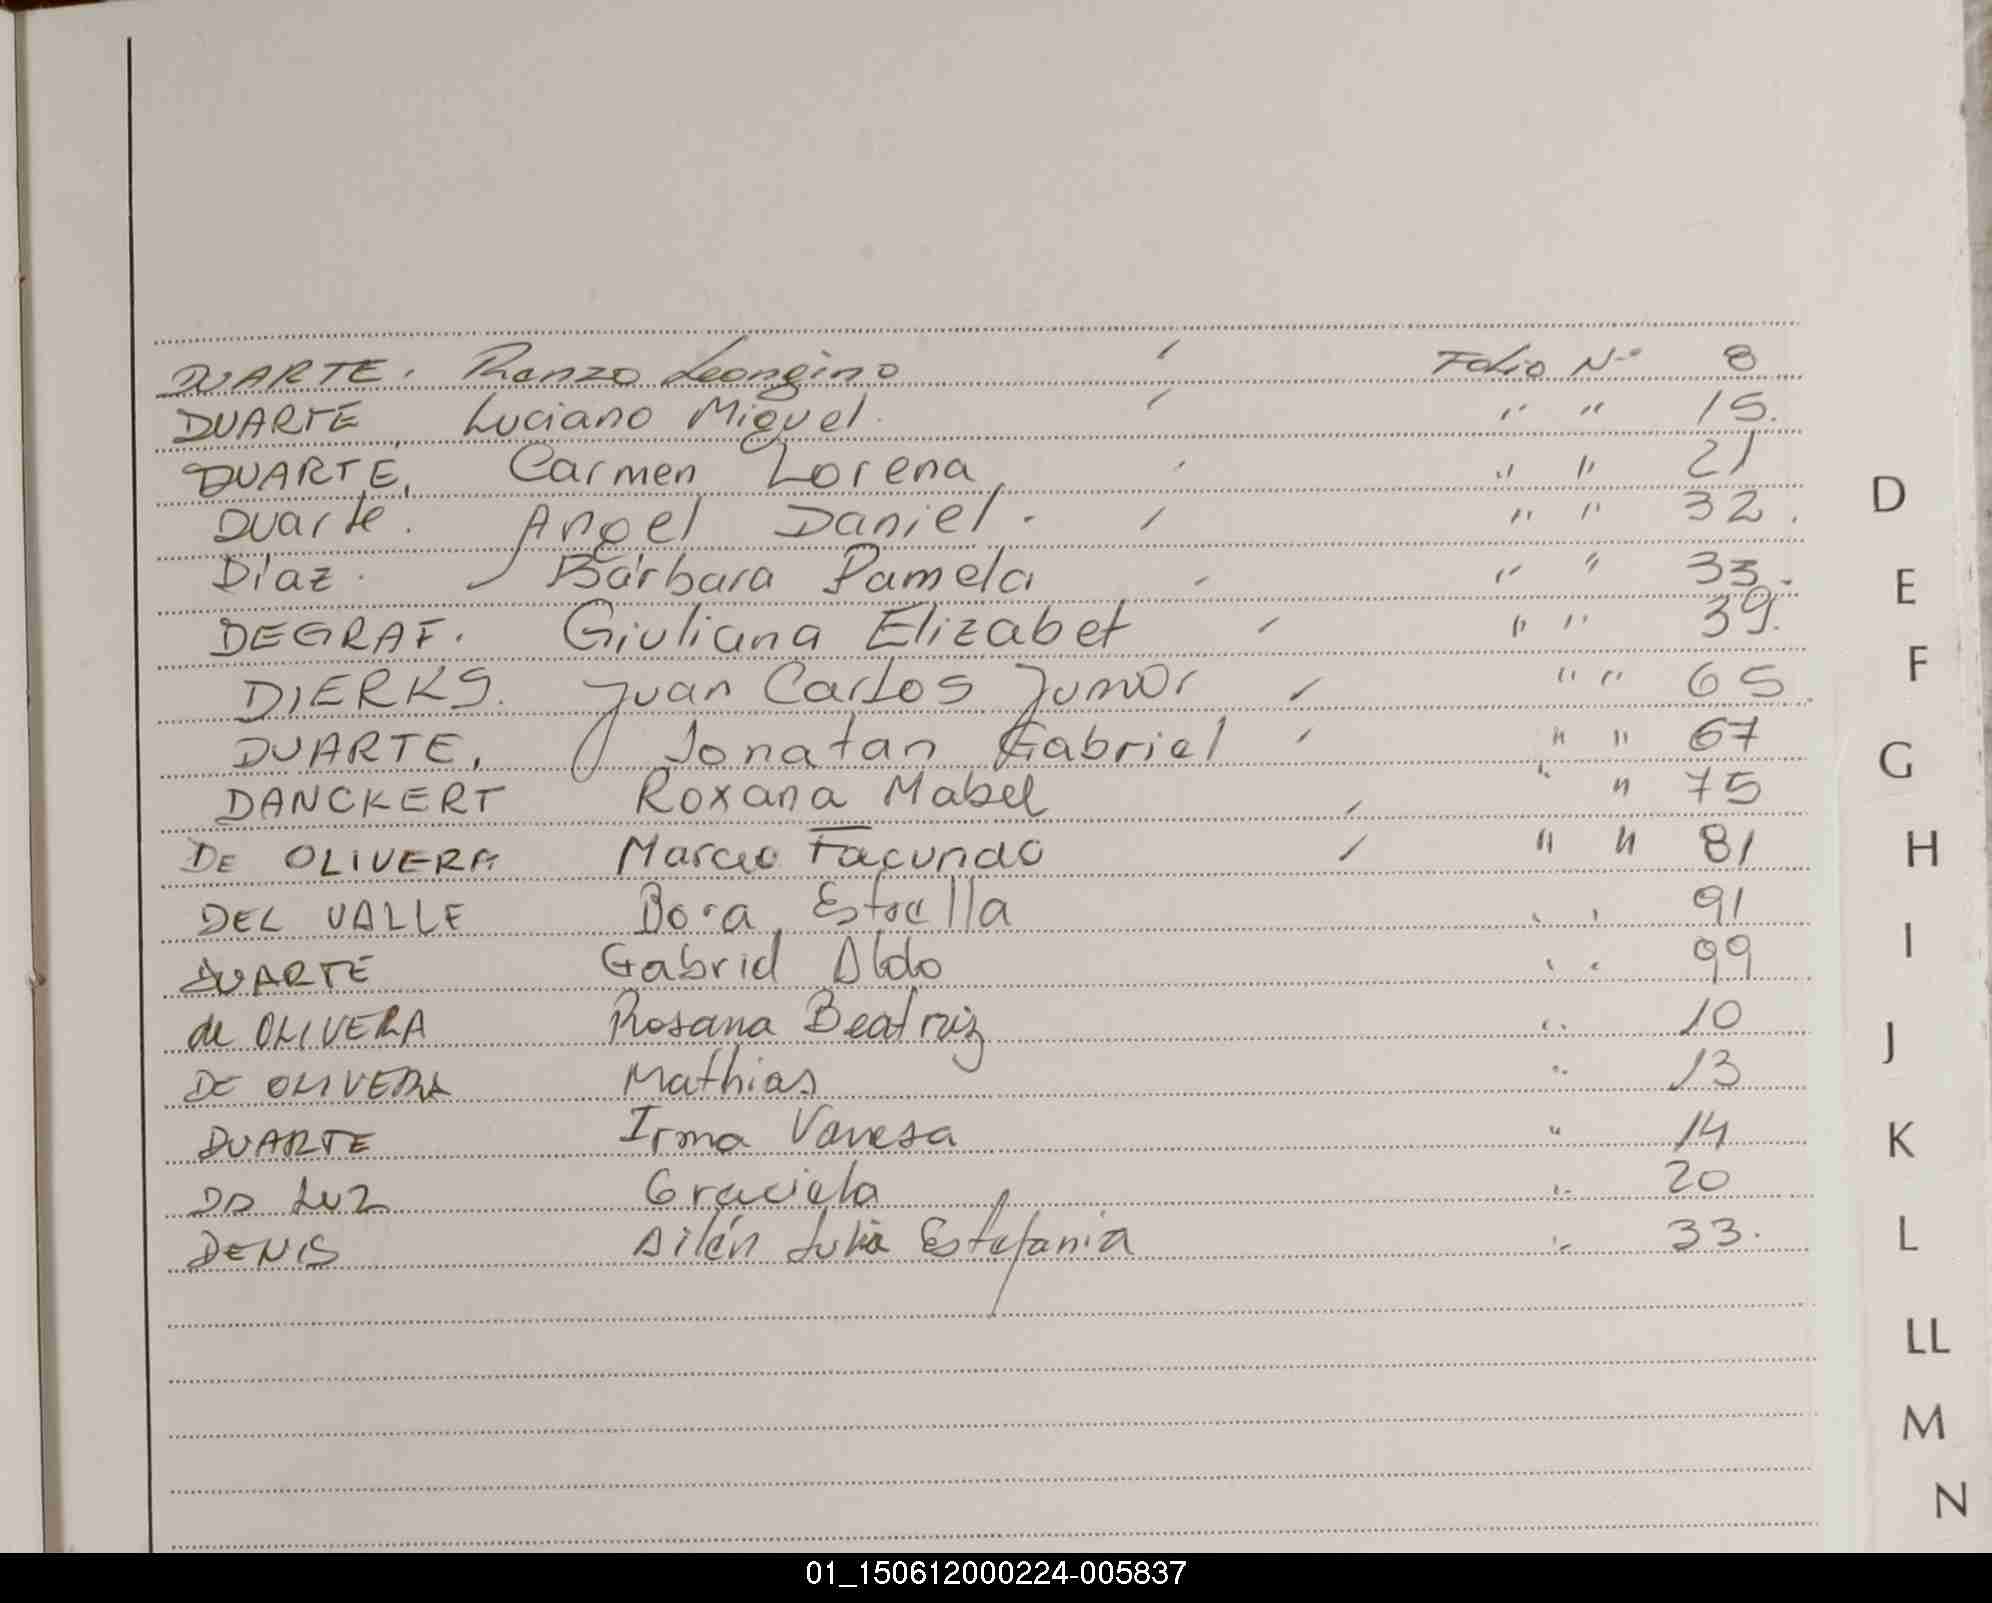 DUARTE. Renzo Leongino ′ Folio Nº 8
DUARTE Luciano Miguel. ′ " " 15.
DUARTE, Carmen Lorena ′ " " 21
Duarte. Angel Daniel. ′ " " 32.
Díaz. Bárbara Pamela ′ " " 33.
DEGRAF. Giuliana Elizabet ′ " " 39.
DIERKS. Juan Carlos Junior ′ " " 65.
DUARTE, Jonatan Gabriel ′ " " 67
DANCKERT Roxana Mabel ′ " " 75
DE OLIVERA Marcio Facundo ′ " " 81
DEL VALLE Dora Estrella " " 91
DUARTE Gabriel Aldo " " 99
de OLIVERA Rosana Beatriz " 10
DE OLIVERA Mathias " 13
DUARTE Irma Vanesa " 14
DA LUZ Graciela " 20
DENIS Ailén Julia Estefania " 33.
D
E
F
G
H
I
J
K
L
LL
M
N
01_150612000224-005837